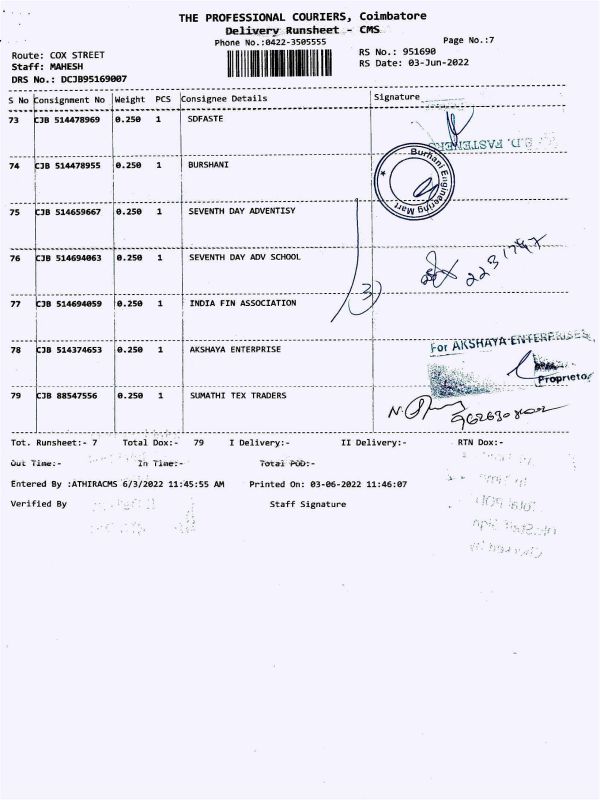 THE PROFESSIONAL COURIERS, Coimbatore
Delivery Runsheet - CMS
Phone No.:0422-3505555 Page No.:7
Route: COX STREET RS No.: 951690
Staff: MAHESH RS Date: 03-Jun-2022
DRS No.: DCJB95169007
S No Consignment No Weight PCS Consignee Details Signature
73 CJB 514478969 0.250 1 SDFASTE
S.D. FASTENERS
74 CJB 514478955 0.250 1 BURSHANI
Burhani Engineering Mart
75 CJB 514659667 0.250 1 SEVENTH DAY ADVENTISY
76 CJB 514694063 0.250 1 SEVENTH DAY ADV SCHOOL
2231797
3
77 CJB 514694059 0.250 1 INDIA FIN ASSOCIATION
78 CJB 514374653 0.250 1 AKSHAYA ENTERPRISE
For AKSHAYA ENTERPRISES,
Proprietor
79 CJB 88547556 0.250 1 SUMATHI TEX TRADERS
Tot. Runsheet:- 7 Total Dox:- 79 I Delivery:- II Delivery:- RTN Dox:-
Out Time:- In Time:- Total POD:-
Entered By :ATHIRACMS 6/3/2022 11:45:55 AM Printed On: 03-06-2022 11:46:07
Verified By Staff Signature